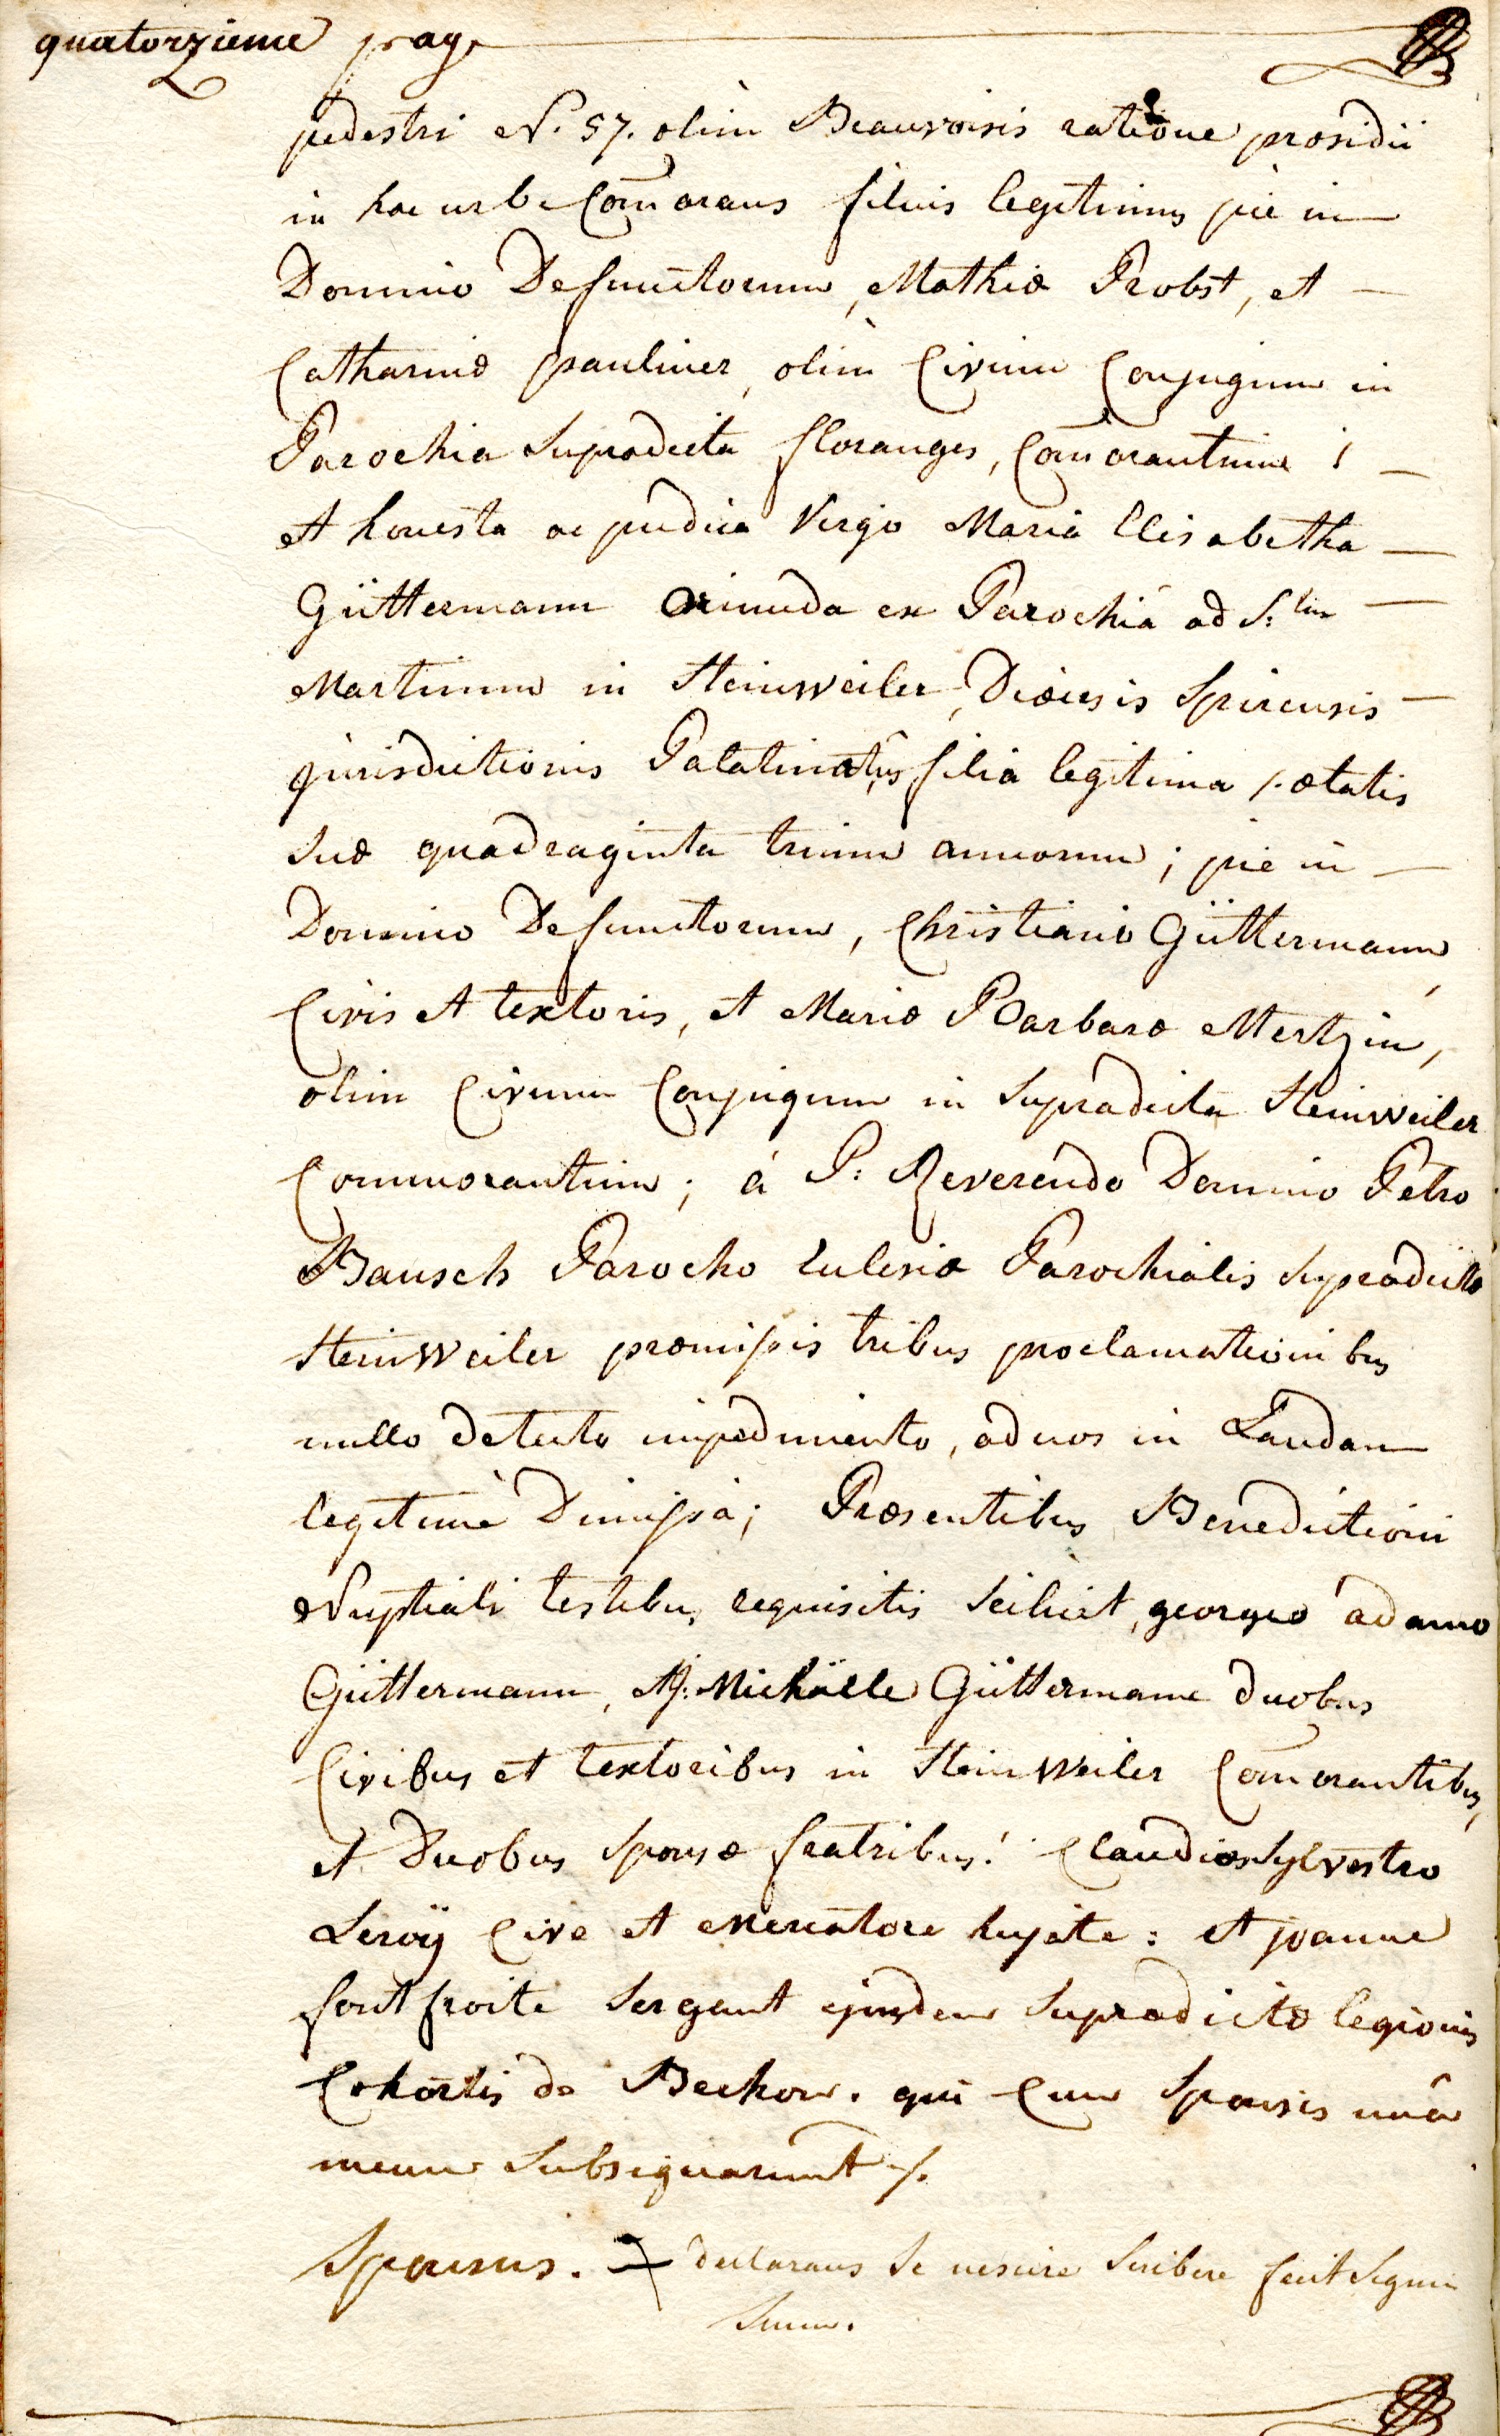 quatorzieme page
pedestri N. 57. olim Beauvoisis ratione præsidii
in hac urbe Com̄orans filius legitimus pie in
Domino Defunctorum, Mathiæ Probst, et
Catharinæ pauliner, olim Civium Conjugum in
Parochia Supradicta floranges, Com̄orantium ;
et honesta ac pudica Virgo Maria Elisabetha
Güttermann Oriunda ex Parochiâ ad S:tum
Martinum in Steinweiler, Diœcesis Spirensis
jurisdictionis Palatinatûs, filia legitima /: ætatis
Suæ quadraginta trium annorum ; pie in
Domino Defunctorum, Christiani Güttermann,
Civis et textoris, et Mariæ Barbaræ Mertzin,
olim Civium Conjugum in Supradicta Steinweiler
Commorantium ; à P: Reverendo Domino Petro
Bausch Parocho Ecclesiæ Parochialis Supradictæ
Steinweiler præmissis tribus proclamationibus
nullo detecto impedimento, ad nos in Landau
legitimè Dimissa ; Præsentibus Benedictioni
Nuptiali testibus requisitis Scilicet, georgio adamo
Güttermann, Michäele Güttermann duobus
Civibus et textoribus in Steinweiler Com̄orantibus,
et Duobus Sponsæ fratribus : Claudio Sylvestro
Leroÿ Cive et Mercatore hujate : et joanne
fontfroite Sergent ejusdem Supradictæ legionis
Cohortis de Bechon. qui Cum Sponsis unâ
mecum Subsignarunt /.
Sponsus. + declarans Se nescire Scribere fecit Signum
Suum.